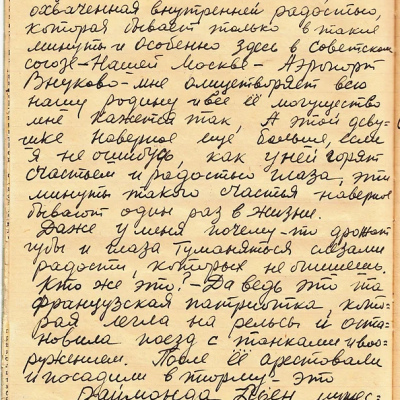 охваченная внутренней радостью,
которая бывает только в такие
минуты и особенно здесь в советском
союзе – Нашей Москве – Аэропорт
Внуково – мне олицетворяет всю
нашу родину и всё её могущество
мне кажется так, А этой деву-
шке наверное ещё больше, если
я не ошибусь, как у ней горят
счастьем и радостью глаза, эти
минуты такого счастья наверно
бывают один раз в жизни.
Даже у меня почему-то дрожат
губы и глаза туманяться слезами
радости, которых не опишешь.
Кто же это? – Да ведь это та
французская патриотка, кото-
рая легла на рельсы и оста-
новила поезд с танками и воо-
ружением. После её арестовали
и посадили в тюрьму – это
Раймонда Дьен